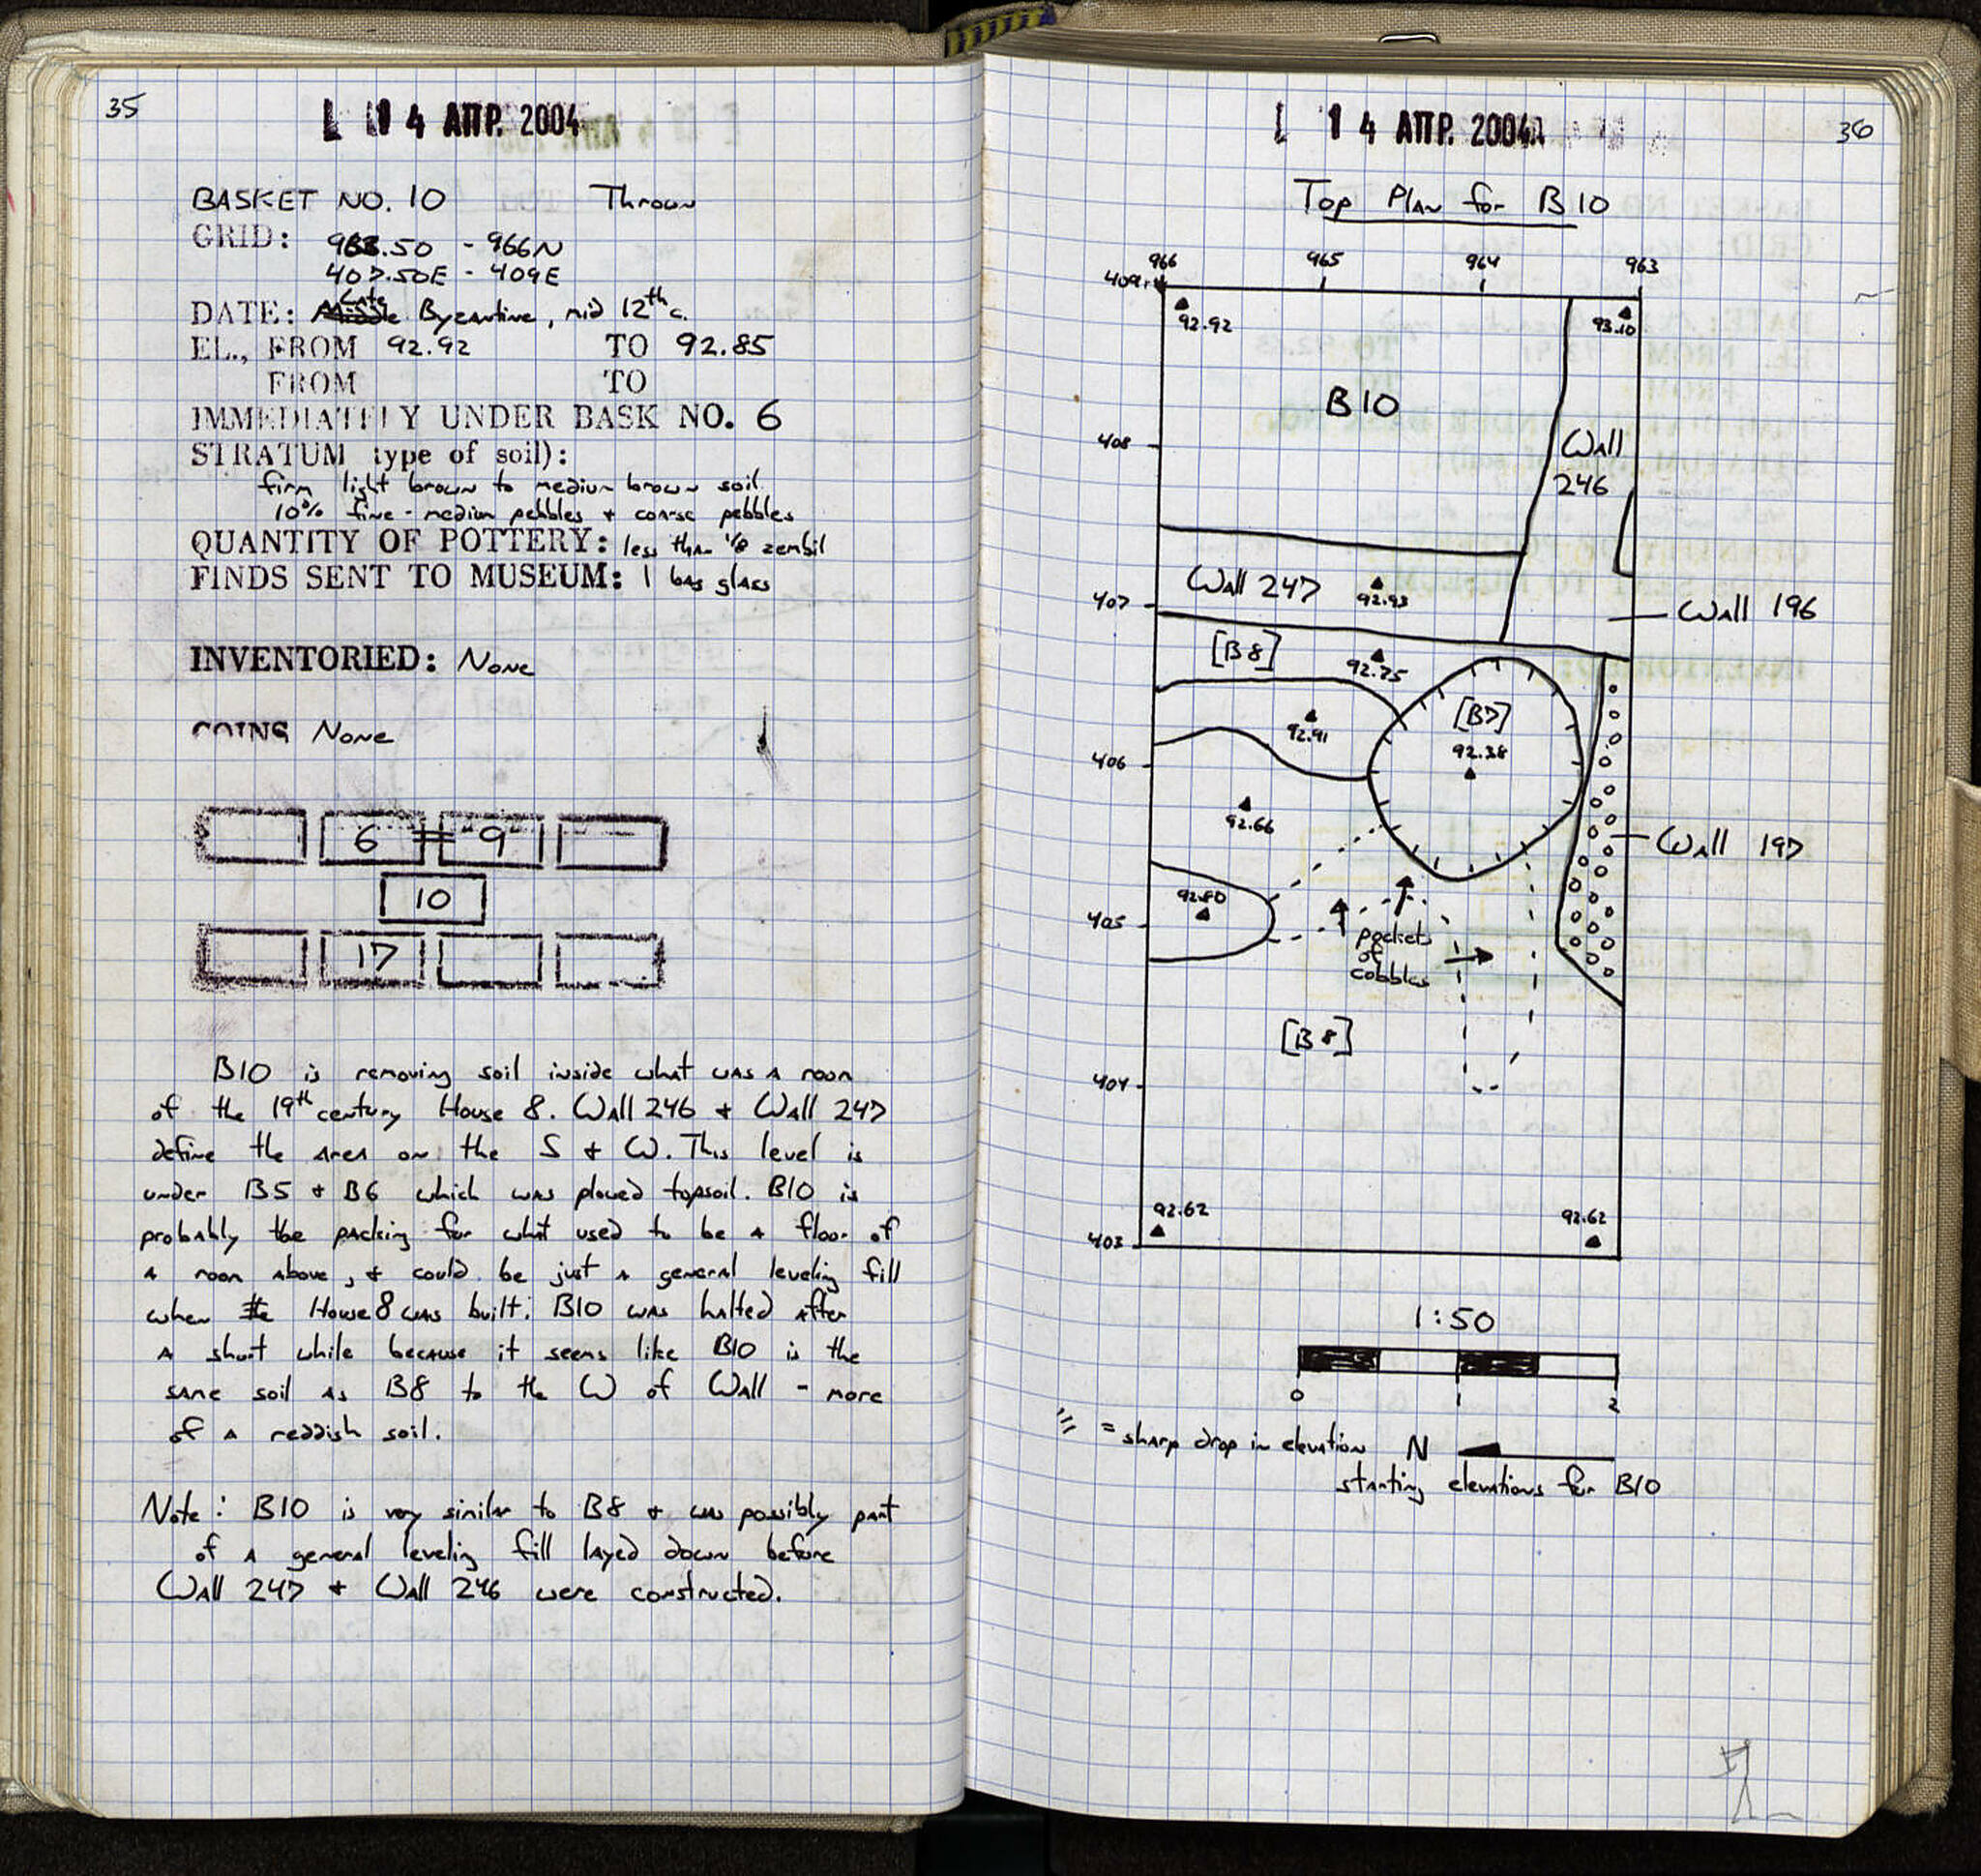 35
14 ΑΠΡ. 2004
BASKET NO. 10 Thrown
GRID: 963.50 - 966N
407.50E - 409E
Late
DATE: Middle Byzantine, mid 12th c.
EL., FROM 92.92 TO 92.85
FROM TO
IMMEDIATELY UNDER BASK NO. 6
STRATUM type of soil):
firm light brown to medium brown soil.
10% fine-medium pebbles + coarse pebbles
QUANTITY OF POTTERY: less than 1/8 zembil
FINDS SENT TO MUSEUM: 1 bag glass
INVENTORIED: None
COINS None
6 9
10
17
B10 is removing soil inside what was a room
of the 19th century House 8. Wall 246 + Wall 247
define the area on the S + W. This level is
under B5 + B6 which was plowed topsoil. B10 is
probably the packing for what used to be a floor of
a room above, + could be just a general leveling fill
when the House 8 was built. B10 was halted after
a short while because it seems like B10 is the
same soil as B8 to the W of Wall - more
of a reddish soil.
Note: B10 is very similar to B8 + was possibly part
of a general leveling fill layed down before
Wall 247 + Wall 246 were constructed.
36
14 ΑΠΡ. 2004
Top Plan for B10
966 965 964 963
409
92.92 93.10
B10
408
Wall
246
Wall 247 92.93
407
Wall 196
[B8]
92.75
[B7]
92.91
92.38
406
92.66
Wall 197
92.80
405
pockets
of
cobbles
[B8]
404
92.62 92.62
403
1:50
0 1 2
= sharp drop in elevation N
starting elevations for B10